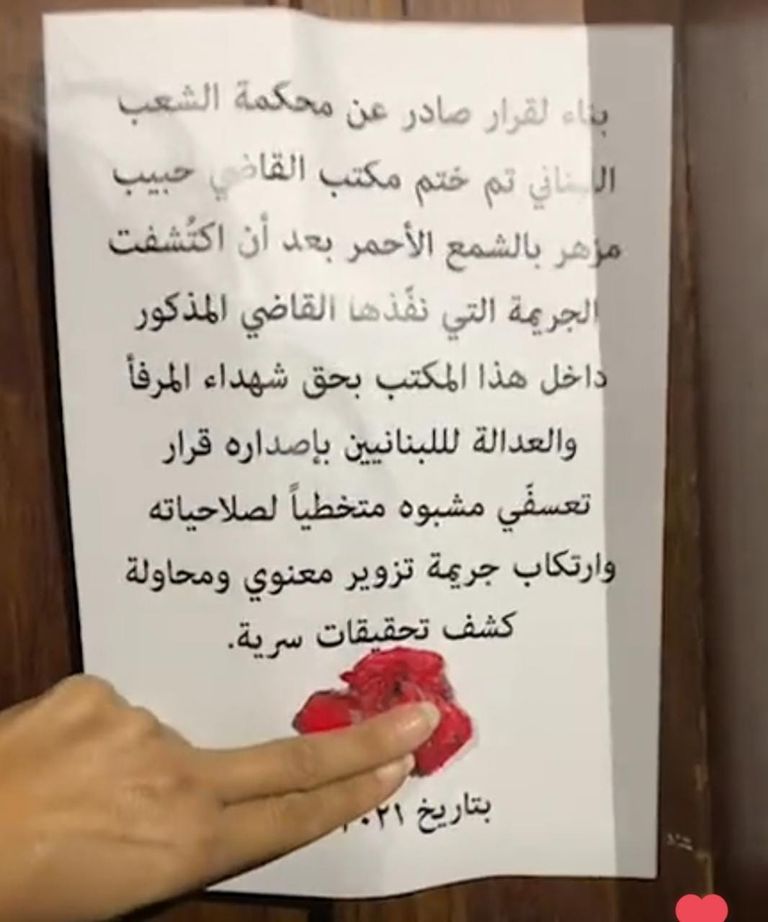 بناء لقرار صادر عن محكمة الشعب
اللبناني تم ختم مكتب القاضي حبيب
مزهر بالشمع الأحمر بعد أن اكتُشفت
الجريمة التي نفّذها القاضي المذكور
داخل هذا المكتب بحق شهداء المرفأ
والعدالة لللبنانيين بإصداره قرار
تعسفّي مشبوه متخطياً لصلاحياته
وارتكاب جريمة تزوير معنوي ومحاولة
كشف تحقيقات سرية.
بتاريخ ٢٠٢١